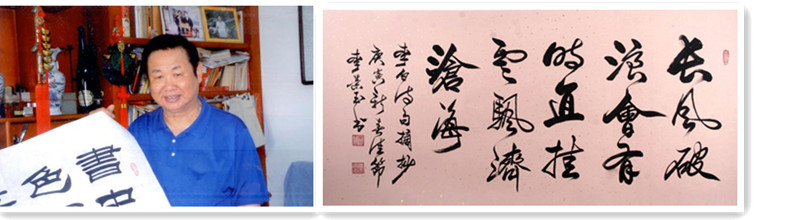 書
色
長風破
浪會有
時直挂
雲颿濟
滄海
李白詩句摘抄
庚寅新春佳節